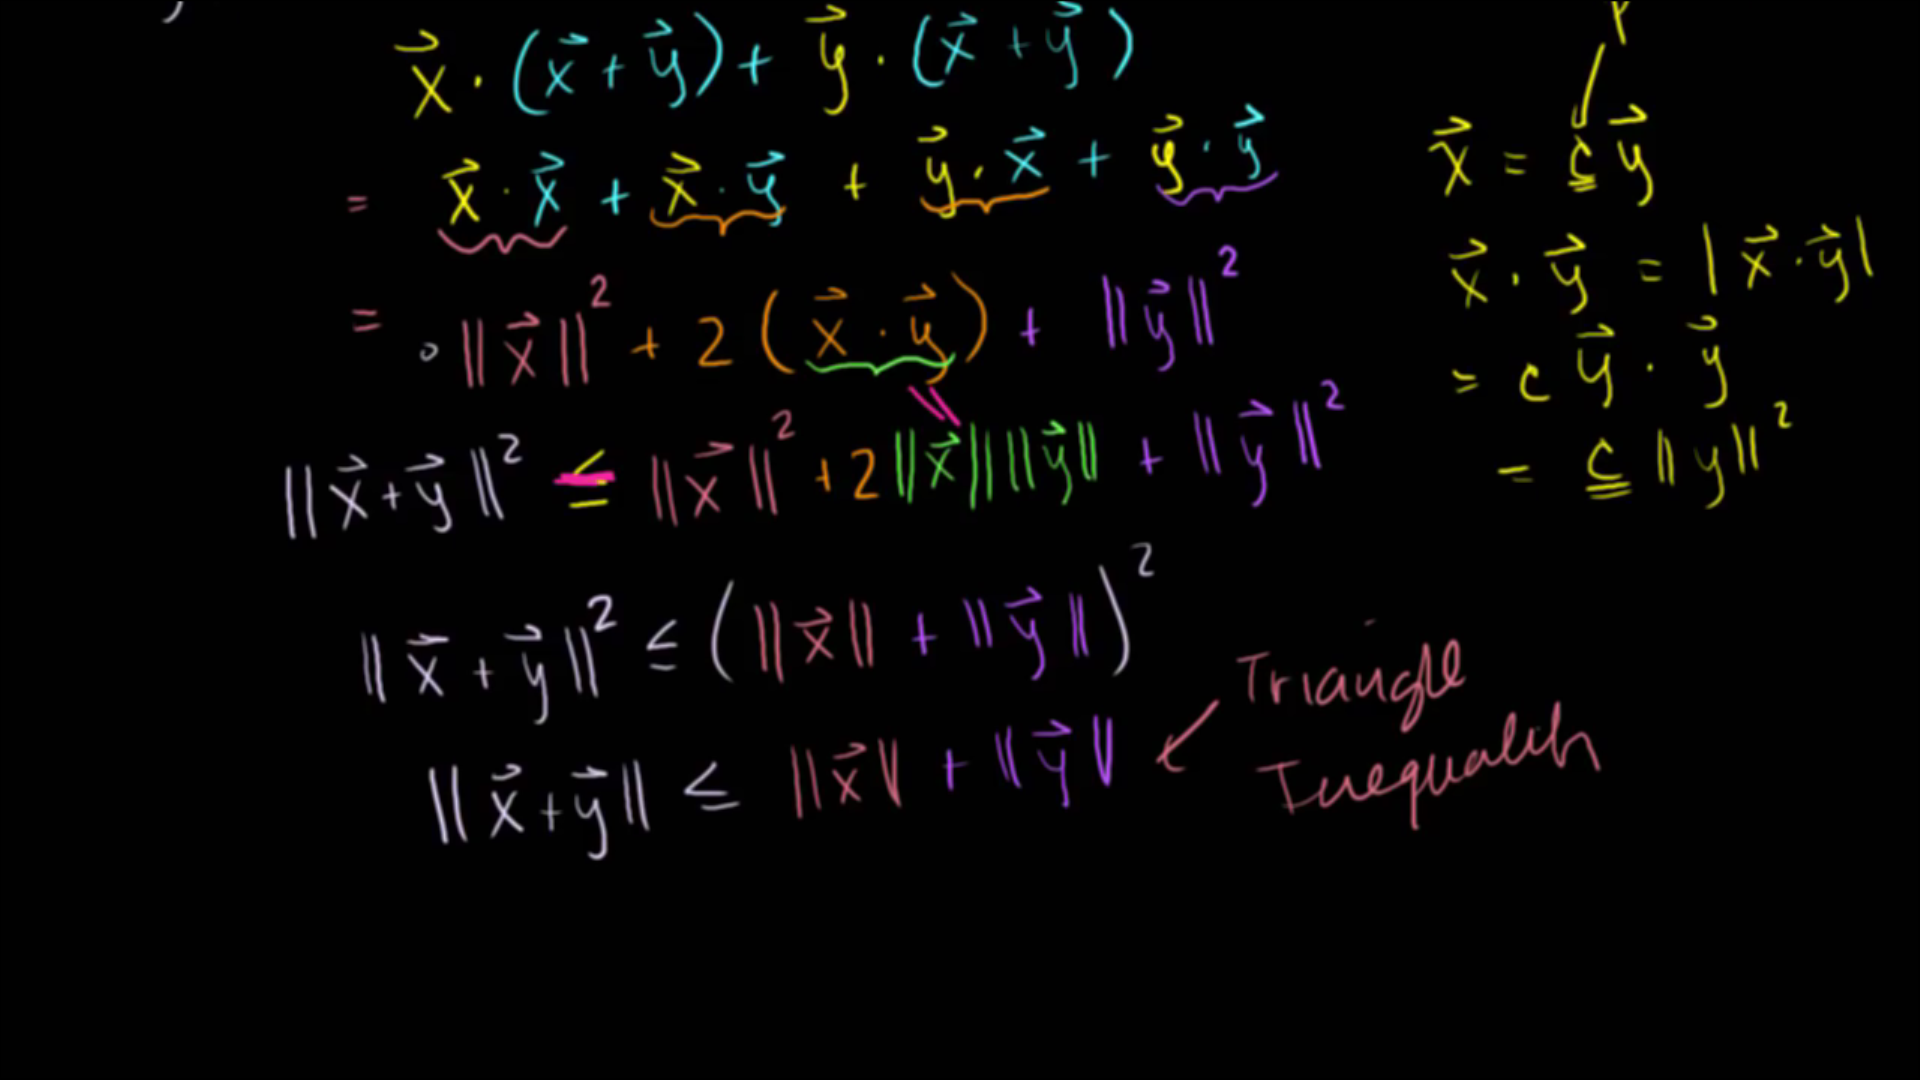 x⃗ · (x⃗ + y⃗) + y⃗ · (x⃗ + y⃗)
= x⃗ · x⃗ + x⃗ · y⃗ + y⃗ · x⃗ + y⃗ · y⃗
= ||x⃗||² + 2 (x⃗ · y⃗) + ||y⃗||²
||x⃗ + y⃗||² ≤ ||x⃗||² + 2||x⃗|| ||y⃗|| + ||y⃗||²
||x⃗ + y⃗||² ≤ (||x⃗|| + ||y⃗||)²
||x⃗ + y⃗|| ≤ ||x⃗|| + ||y⃗||
Triangle
Inequality
x⃗ = c y⃗
x⃗ · y⃗ = |x⃗ · y⃗|
= c y⃗ · y⃗
= c ||y||²